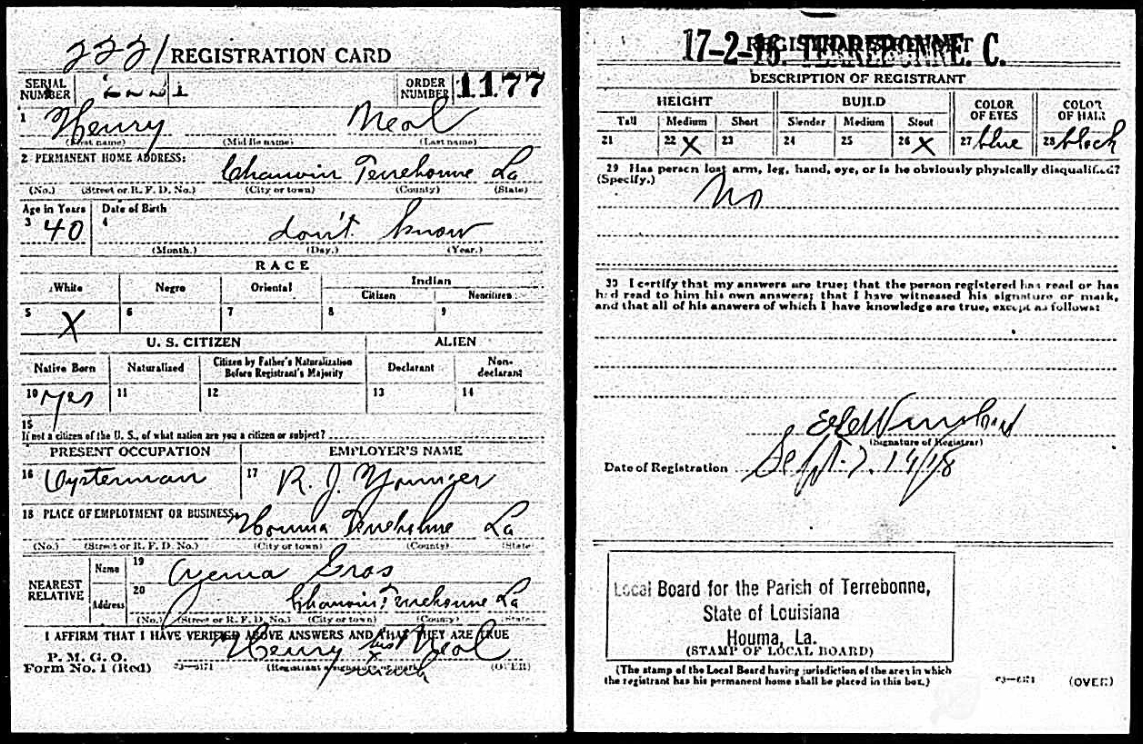 2221 REGISTRATION CARD
SERIAL NUMBER 2221 ORDER NUMBER 1177
1 Henry Neal
(First name) (Middle name) (Last name)
2 PERMANENT HOME ADDRESS:
Chauvin Terrebonne La
(No.) (Street or R. F. D. No.) (City or town) (County) (State)
Age in Years Date of Birth
3 40 4 don't know
(Month.) (Day.) (Year.)
RACE
White Negro Oriental Indian
Citizen Noncitizen
5 X 6 7 8 9
U. S. CITIZEN ALIEN
Native Born Naturalized Citizen by Father's Naturalization Before Registrant's Majority Declarant Non-declarant
10 yes 11 12 13 14
15
If not a citizen of the U. S., of what nation are you a citizen or subject?
PRESENT OCCUPATION EMPLOYER'S NAME
16 Oysterman 17 R. J. Younger
18 PLACE OF EMPLOYMENT OR BUSINESS:
Houma Terrebonne La
(No.) (Street or R. F. D. No.) (City or town) (County) (State)
NEAREST RELATIVE
Name 19 Gros
Address 20 Chauvin Terrebonne La
(No.) (Street or R. F. D. No.) (City or town) (County) (State)
I AFFIRM THAT I HAVE VERIFIED ABOVE ANSWERS AND THAT THEY ARE TRUE
P. M. G. O.
Form No. 1 (Red) Henry his X mark Neal
(Registrant's signature or mark) (OVER)
REGISTRAR'S REPORT
17-2-16. TERREBONNE. C.
DESCRIPTION OF REGISTRANT
HEIGHT BUILD COLOR OF EYES COLOR OF HAIR
Tall Medium Short Slender Medium Stout
21 22 X 23 24 25 26 X 27 blue 28 black
29 Has person lost arm, leg, hand, eye, or is he obviously physically disqualified?
(Specify.) No
30 I certify that my answers are true; that the person registered has read or has
had read to him his own answers; that I have witnessed his signature or mark,
and that all of his answers of which I have knowledge are true, except as follows:
(Signature of Registrar)
Date of Registration Sept. 1918
Local Board for the Parish of Terrebonne,
State of Louisiana
Houma, La.
(STAMP OF LOCAL BOARD)
(The stamp of the Local Board having jurisdiction of the area in which
the registrant has his permanent home shall be placed in this box.)
(OVER)